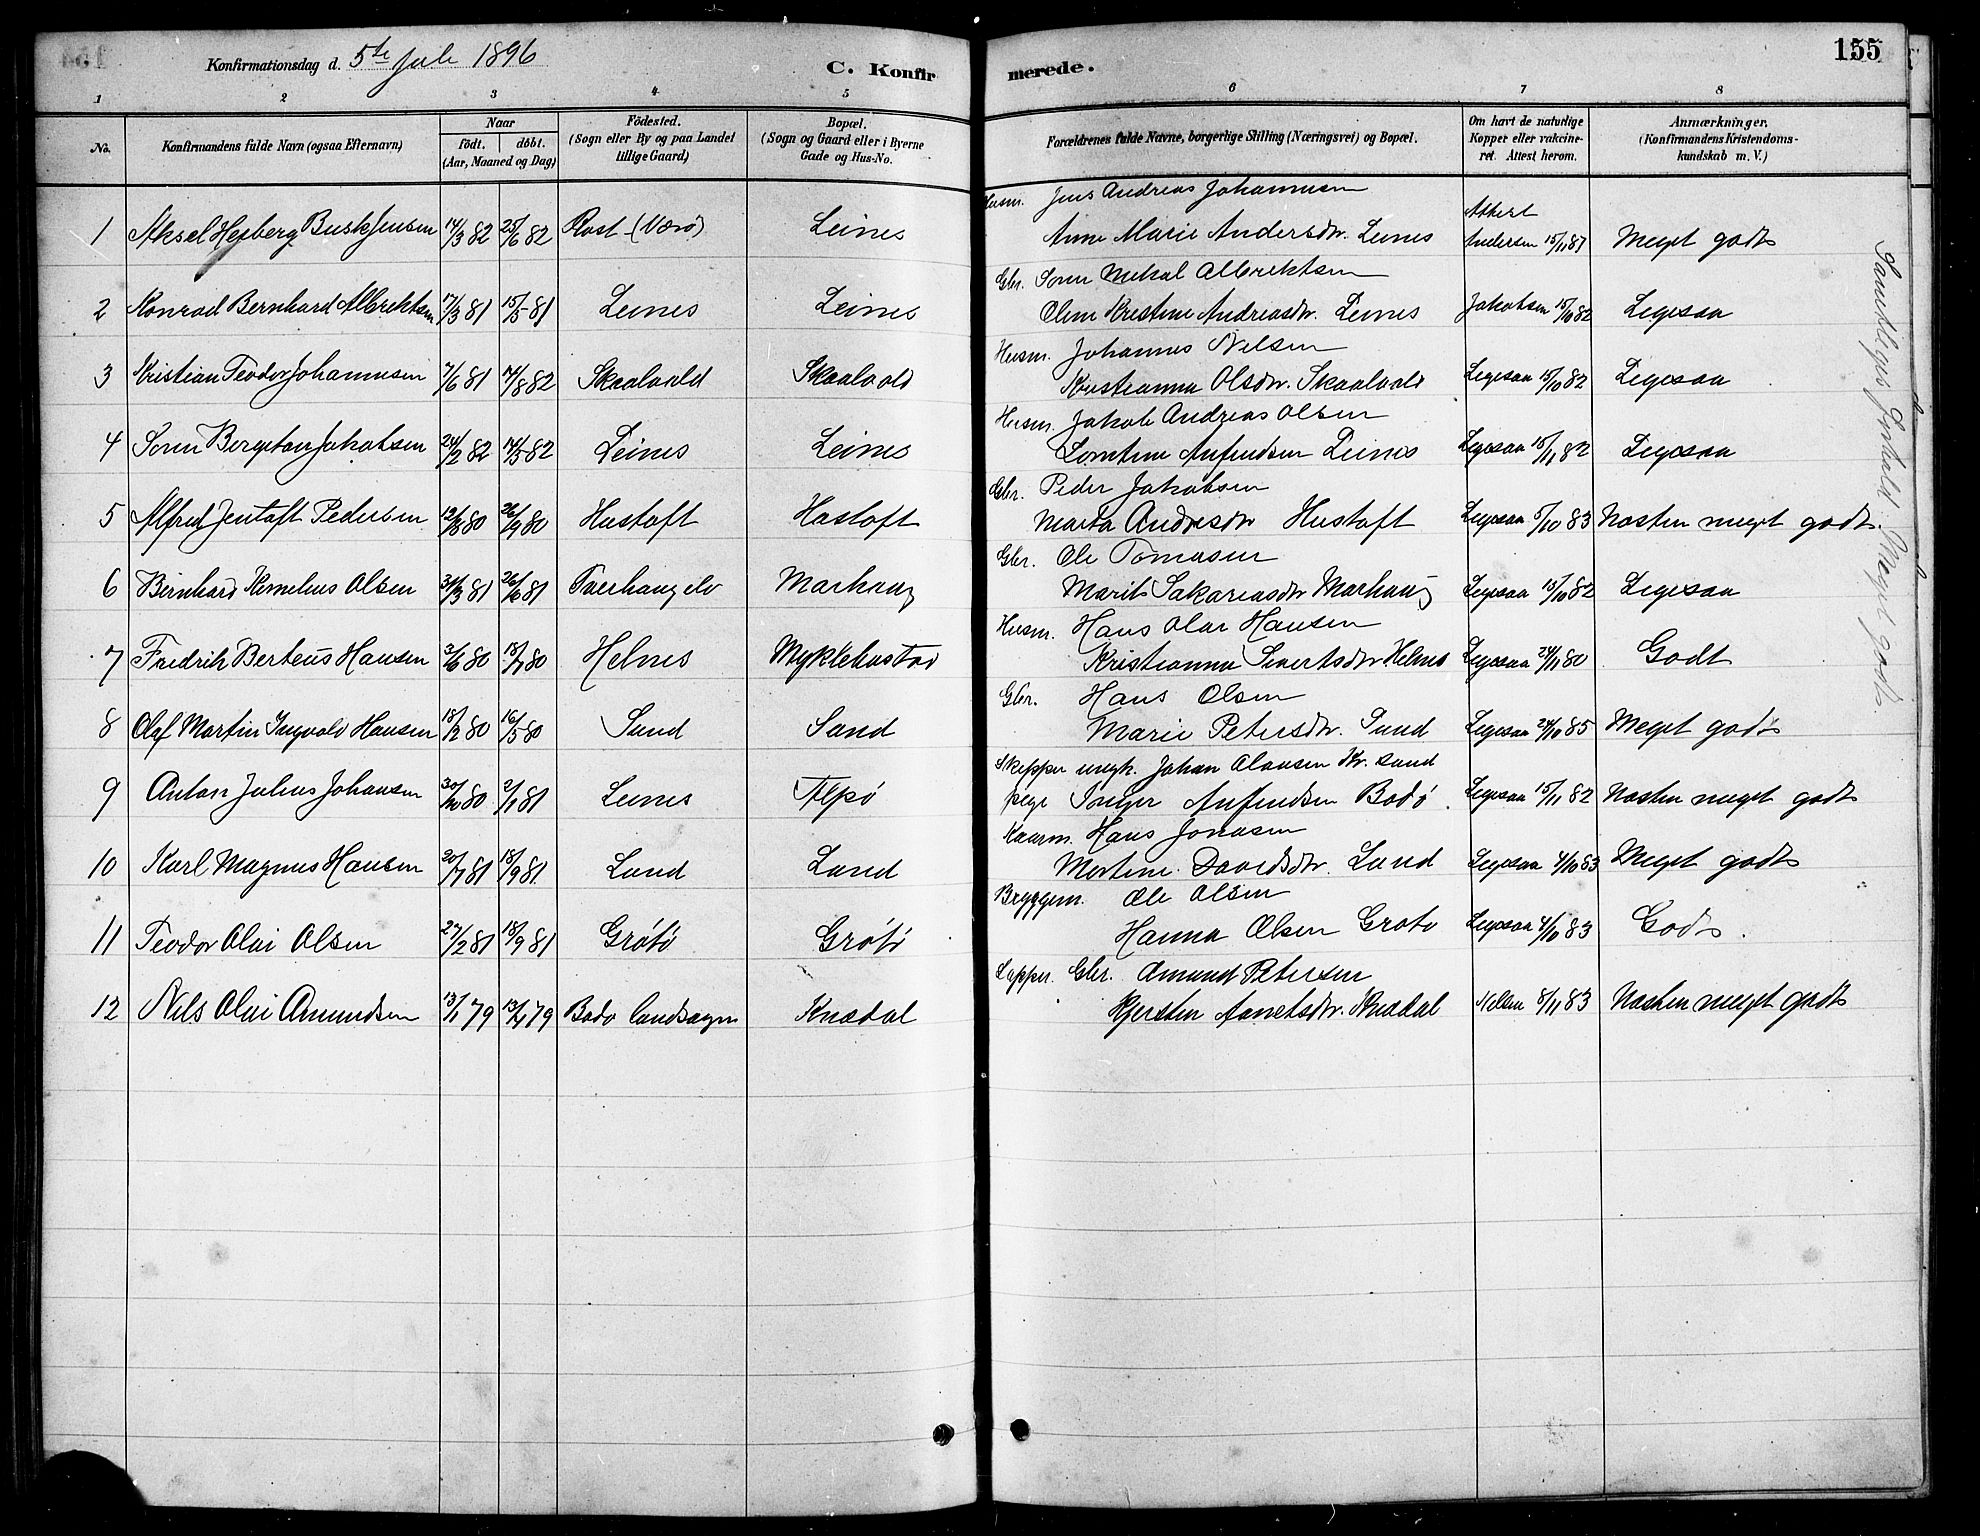 Konfirmationsdag d. 5te Juli 1896
C. Konfirmerede.
155
1 2 3 4 5 6 7 8
No.
Konfirmandens fulde Navn (ogsaa Efternavn)
Naar
födt. döbt.
(Aar, Maaned og Dag)
Födested.
(Sogn eller By og paa Landet
tillige Gaard)
Bopæl.
(Sogn og Gaard eller i Byerne
Gade og Hus-No.
Forældrenes fulde Navne, borgerlige Stilling (Næringsvei) og Bopæl.
Om havt de naturlige
Kopper eller vakcine-
ret. Attest herom.
Anmærkninger.
(Konfirmandens Kristendoms-
kundskab m. V.)
Husm. Jens Andreas Johannesen
1 Aksel Hejberg Busk Jensen 14/3 82 25/6 82 Röst (Værö) Leines Anne Marie Andersdtr. Leines Attest Andersen 15/11 87 Meget godt
Gbr. Sören Mekal Albrektsen
2 Konrad Bernhard Albrektsen 17/3 81 15/5 81 Leines Leines Oline Kristine Andreasdtr. Leines Jakobsen 15/10 82 Ligesaa
Husm. Johannes Nilsen
3 Kristian Teodor Johannesen 7/6 81 14/8 82 Skaalvold Skaalvold Kristianna Olsdtr. Skaalvold Ligesaa 15/10 82 Ligesaa
Husm. Jakob Andreas Olsen
4 Sören Bergiton Jakobsen 24/2 82 14/5 82 Leines Leines Lorntine Anfindsen Leines Ligesaa 15/11 82 Ligesaa
Gbr. Peder Jakobsen
5 Alfred Jentoft Pedersen 12/8 80 26/9 80 Hustoft Hustoft Marta Andersdtr Hustoft Ligesaa 5/10 83 Næsten meget godt
Gbr. Ole Tomasen
6 Bernhard Kornelius Olsen 31/3 81 26/6 81 Tverhaugelv Marhaug Marit Sakariasdtr Marhaug Ligesaa 15/10 82 Ligesaa
Husm. Hans Olar Hansen
7 Fredrik Berteus Hansen 3/6 80 18/7 80 Helnes Myklebostad Kristianna Sivertsdtr Helnes Ligesaa 24/11 80 Godt
Gbr. Hans Olsen
8 Olaf Martin Ingvald Hansen 18/2 80 16/5 80 Sund Sund Marie Petersdtr. Sund Ligesaa 24/10 85 Meget godt
Skipper ungk. Johan Olausen Kv. sand
9 Anton Julius Johansen 30/10 80 2/1 81 Leines Alpö pige Inger Anfindsen Bodö. Ligesaa 15/11 82 Næsten meget godt
Kaarm. Hans Jonasen
10 Karl Magnus Hansen 20/7 81 18/9 81 Lund Lund Mortine Davidsdtr. Lund Ligesaa 4/10 83 Meget godt
Bryggem. Ole Olsen
11 Teodor Olai Olsen 27/2 81 18/9 81 Grötö Grötö Hanna Olsen Grötö Ligesaa 4/10 83 Godt.
Lapper. Gbr. Amund Petersen
12 Nils Olai Amundsen 13/1 79 13/4 79 Bodö landsogn Knædal Kjersten Aanetsdtr. Knædal Nilsen 8/11 83 Næsten meget godt
Samtliges Forhold: Meget godt.